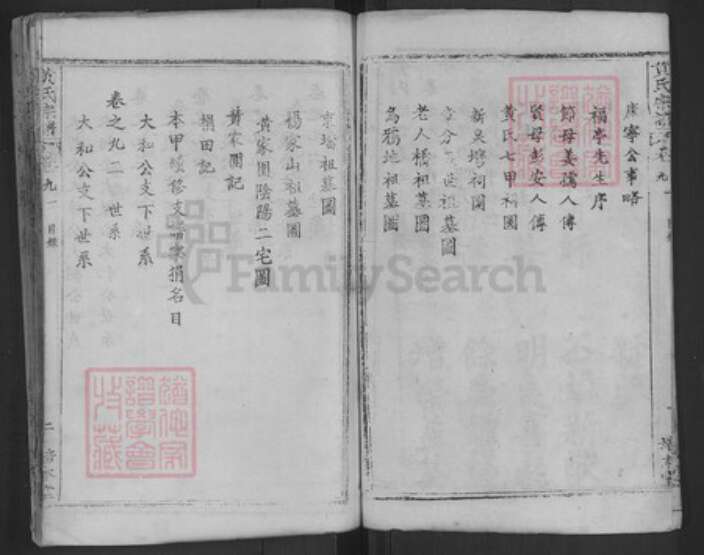 黄氏宗譜
卷九
目錄
康寧公事略
福亭先生序
節母姜孺人傳
賢母彭安人傳
黃氏七甲祠圖
新吳塆祠圖
世祖墓圖
老人橋祖墓圖
烏鴉地祖墓圖
黄氏宗譜
卷九
目錄
京塆祖墓圖
楊家山祖墓圖
黃家園陰陽二宅圖
黃家園記
捐田記
本甲續修支譜樂捐名目
大和公支下世系
卷之九二 世系
大和公支下世系
二
FamilySearch